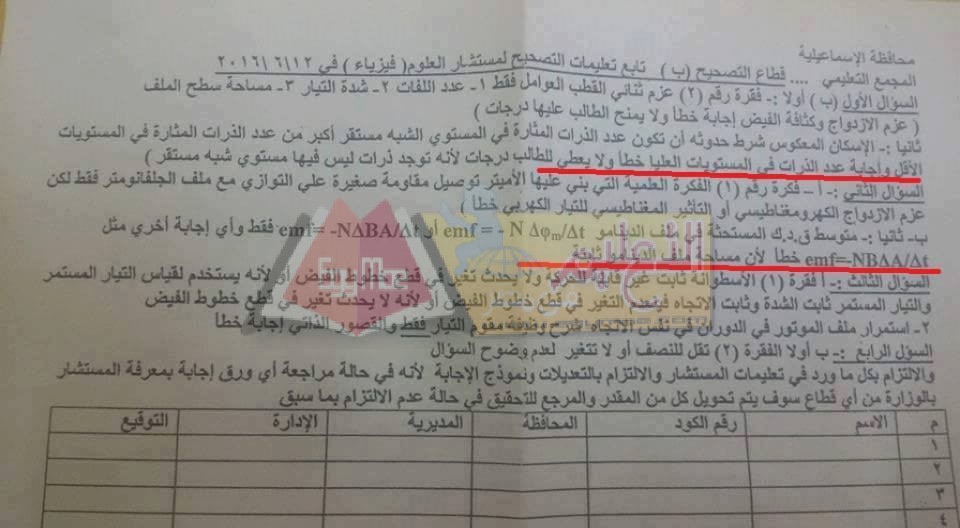 محافظة الإسماعيلية
المجمع التعليمي .... قطاع التصحيح (ب) تابع تعليمات التصحيح لمستشار العلوم( فيزياء ) في ٢٠١٦/٦/١٢
السؤال الأول (ب) أولا :- فقرة رقم (٢) عزم ثنائي القطب العوامل فقط ١- عدد اللفات ٢- شدة التيار ٣- مساحة سطح الملف
( عزم الازدواج وكثافة الفيض إجابة خطأ ولا يمنح الطالب عليها درجات )
ثانيا :- الإسكان المعكوس شرط حدوثه أن تكون عدد الذرات المثارة في المستوي الشبه مستقر أكبر من عدد الذرات المثارة في المستويات
الأقل وإجابة عدد الذرات في المستويات العليا خطأ ولا يعطي للطالب درجات لأنه توجد ذرات ليس فيها مستوي شبه مستقر )
السؤال الثاني :- أ – فكرة رقم (١) الفكرة العلمية التي بني عليها الأميتر توصيل مقاومة صغيرة علي التوازي مع ملف الجلفانومتر فقط لكن
عزم الازدواج الكهرومغناطيسي أو التأثير المغناطيسي للتيار الكهربي خطأ )
ب- ثانيا :- متوسط ق.د.ك المستحثة في ملف الدينامو emf = - N Δφm/Δt أو emf= -NΔBA/Δt فقط وأي إجابة أخري مثل
emf=-NBΔA/Δt خطأ لأن مساحة ملف الدينامو ثابتة
السؤال الثالث :- أ فقرة (١) الأسطوانة ثابت غير قابلة للحركة ولا يحدث تغير في قطع خطوط الفيض أو لأنه يستخدم لقياس التيار المستمر
والتيار المستمر ثابت الشدة وثابت الاتجاه فينعدم التغير في قطع خطوط الفيض أو لأنه لا يحدث تغير في قطع خطوط الفيض
٢- استمرار ملف الموتور في الدوران في نفس الاتجاه شرح وظيفة مقوم التيار فقط والقصور الذاتي إجابة خطأ
السؤل الرابع :- ب أولا الفقرة (٢) تقل للنصف أو لا تتغير لعدم وضوح السؤال
والالتزام بكل ما ورد في تعليمات المستشار والالتزام بالتعديلات ونموذج الإجابة لأنه في حالة مراجعة أي ورق إجابة بمعرفة المستشار
بالوزارة من أي قطاع سوف يتم تحويل كل من المقدر والمراجع للتحقيق في حالة عدم الالتزام بما سبق
م الاسم رقم الكود المحافظة المديرية الإدارة التوقيع
١
٢
٣
٤